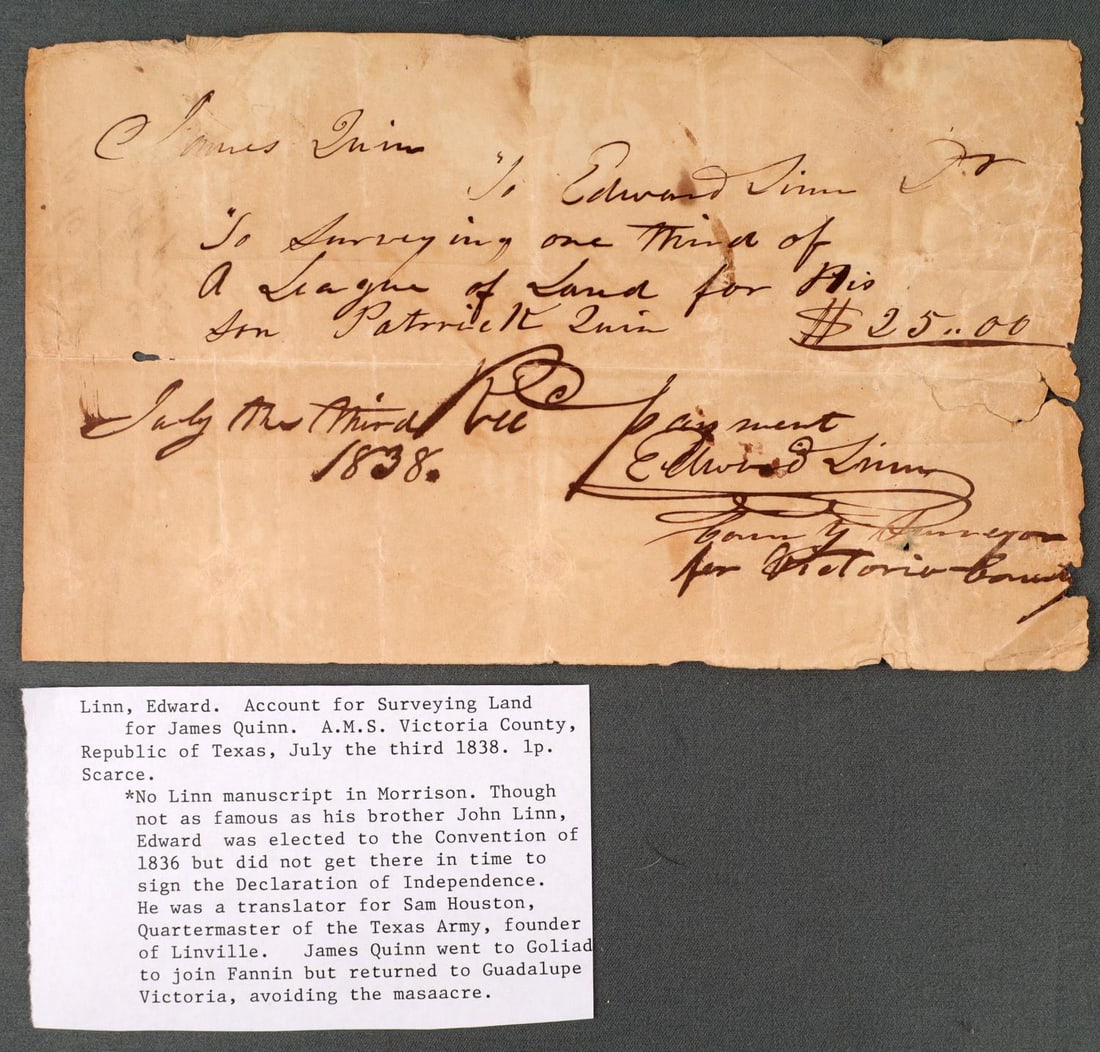 James Quin
To Edward Linn Dr
To Surveying one third of
A League of Land for His
son Patrrick Quin $25..00
July the third Rec payment
1838. Edward Linn
County Surveyor
for Victoria County
Linn, Edward. Account for Surveying Land
for James Quinn. A.M.S. Victoria County,
Republic of Texas, July the third 1838. 1p.
Scarce.
*No Linn manuscript in Morrison. Though
not as famous as his brother John Linn,
Edward was elected to the Convention of
1836 but did not get there in time to
sign the Declaration of Independence.
He was a translator for Sam Houston,
Quartermaster of the Texas Army, founder
of Linville. James Quinn went to Goliad
to join Fannin but returned to Guadalupe
Victoria, avoiding the masaacre.